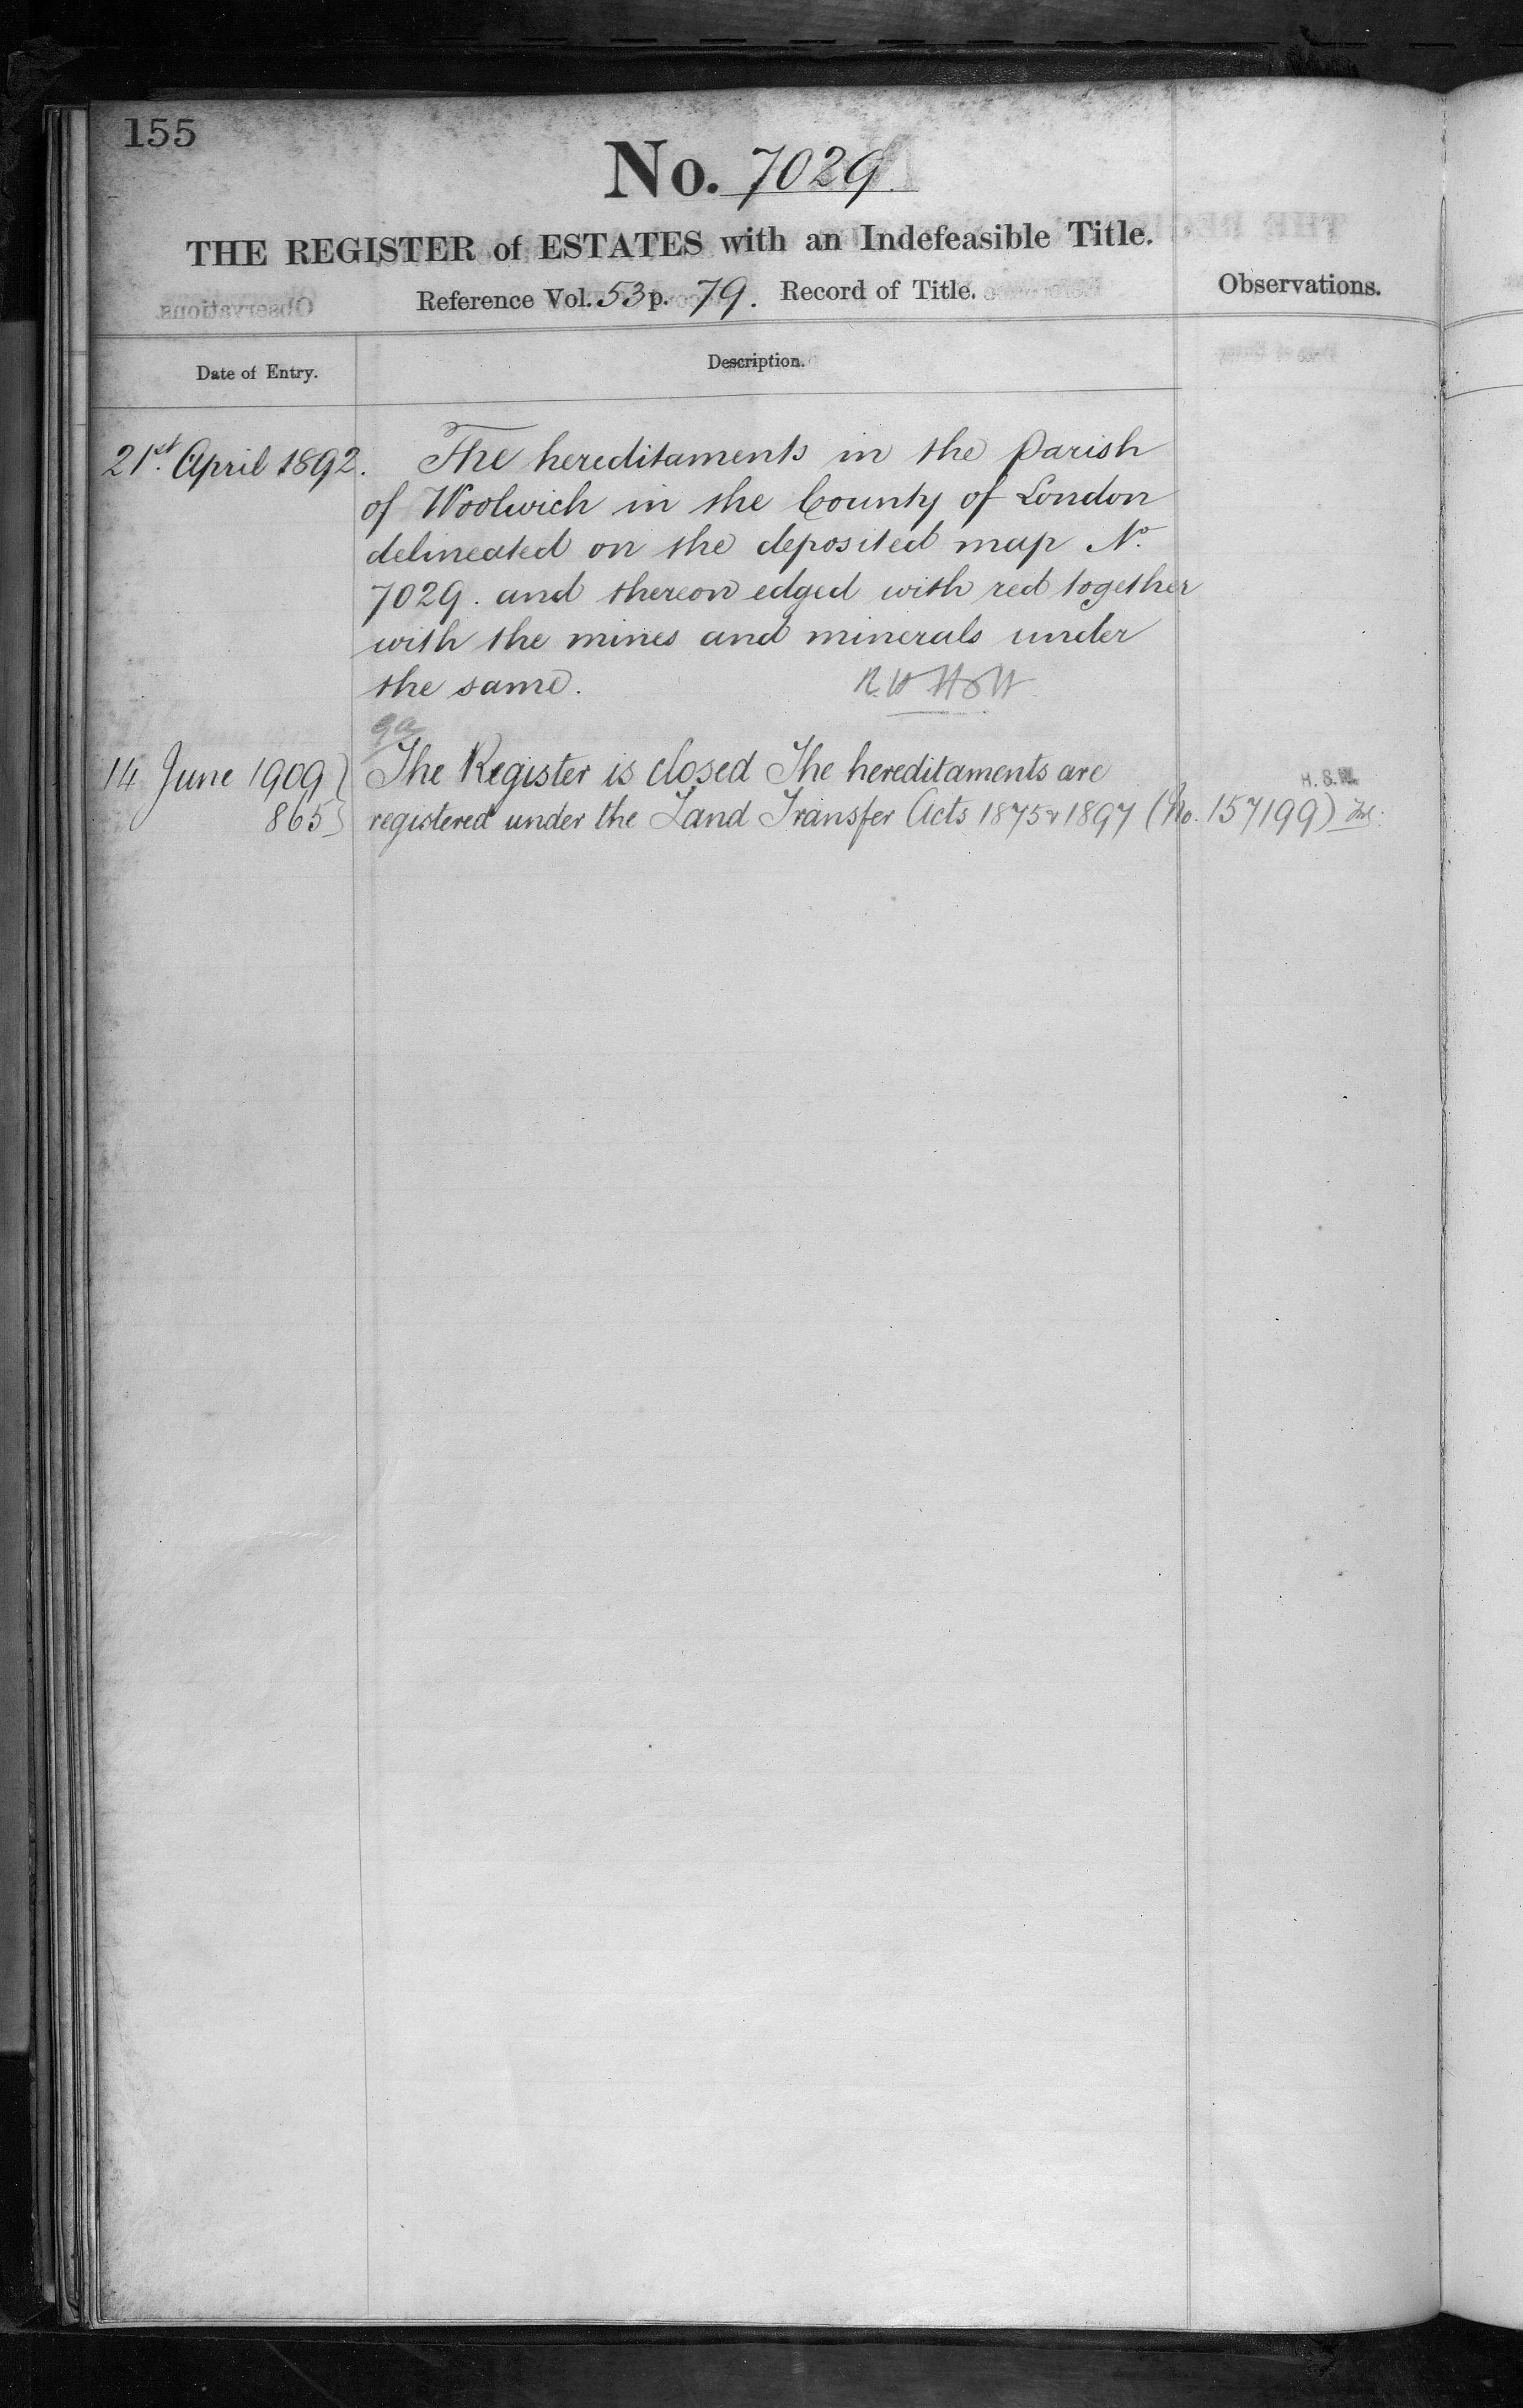 155
No. 7029.
THE REGISTER of ESTATES with an Indefeasible Title.
Reference Vol. 53 p. 79. Record of Title.
Observations.
Date of Entry.
Description.
21st. April 1892. The hereditaments in the Parish
of Woolwich in the County of London
delineated on the deposited map No.
7029. and thereon edged with red together
with the mines and minerals under
the same.
14 June 1909 } The Register is closed The hereditaments are
865 } registered under the Land Transfer Acts 1875 & 1897 (No. 157199)